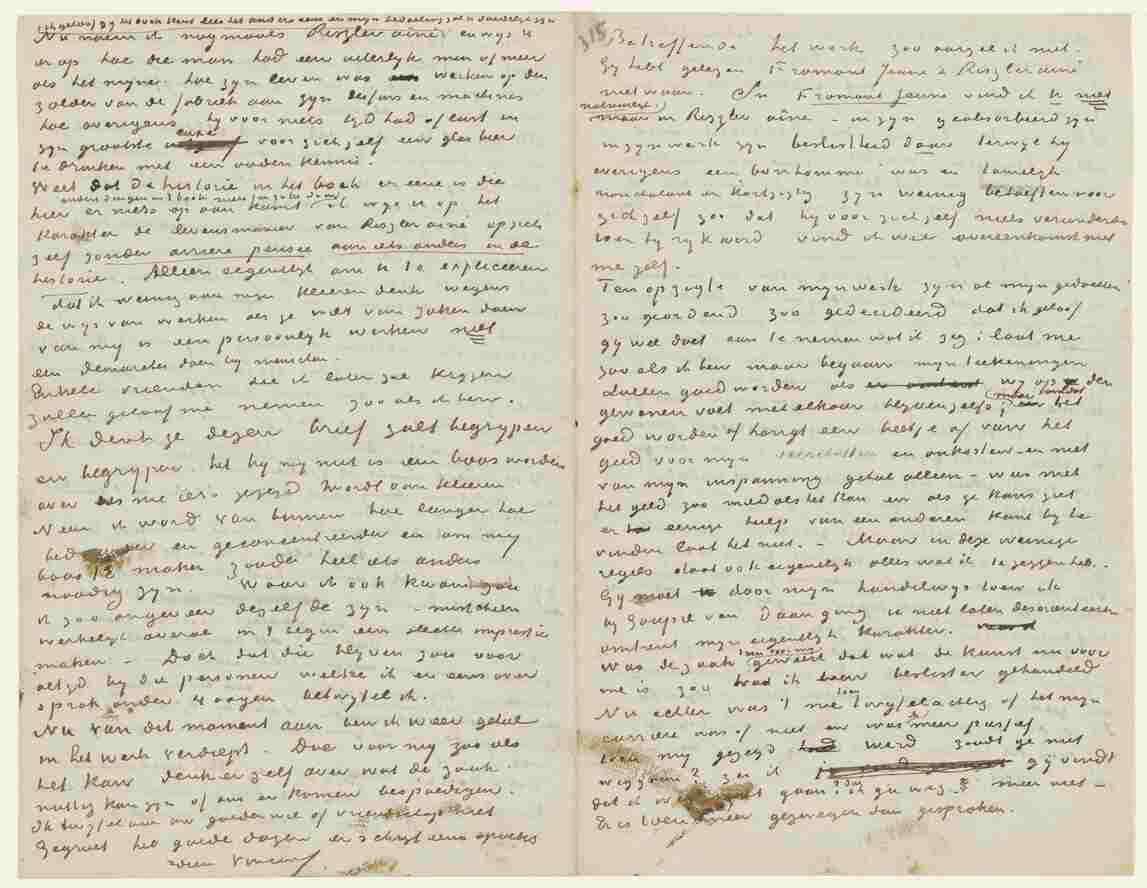 (ik geloof gij het boek kent lees het anders eens en mijn bedoeling zal U duidelijk zijn
Nu noem ik nogmaals Rissler ainé en wijs U
er op hoe die man had een uiterlijk min of meer
als het mijne hoe zijn leven was werken op den
zolder van de fabriek aan zijn en machines
hoe overigens hij voor niets tijd had of lust en
zijn grootste luxe voor zich zelf een glas bier
te drinken met een ouden kennis.
Weet dat de historie in het boek er eene is die
andere dingen in 't boek
hier er niets op aan komt ik wijs U op het
Karakter de levensmanier van Rissler ainé op zich
zelf zonder arriere pensée aan iets anders in de
historie. Alleen eigentlijk om U te expliceeren
dat ik weinig aan mijn kleeren denk wegens
de wijs van werken als ge wilt van zaken doen
van mij is een persoonlijk werken niet
een demarches doen bij menschen.
Enkele vrienden die ik later zal krijgen
zullen geloof me nemen zoo als ik ben.
Ik denk ge dezen brief zult begrijpen
en begrijpen het bij mij niet is een boos worden
over als me iets gezegd wordt van kleeren
Neen ik word van binnen hoe langer hoe
en geconcentreerder en om mij
boos te maken zoude heel iets anders
noodig zijn. Waar ik ook kwam zou
ik zoo ongeveer dezelfde zijn – misschien
werkelijk overal in 't begin een slechte impressie
maken – Doch dat die blijven zou voor
altijd bij die personen welke ik er eens over
sprak onder 4 oogen betwijfel ik.
Nu van dit moment aan ben ik weer geheel
in het werk verdiept. Doe voor mij zoo als
het kan denk er zelf over wat de zaak
nuttig kan zijn of ons er komen bespoedigen.
Ik twijfel aan uw goeden wil of vriendschap niet
Gegroet heb goede dagen en schrijf eens spoedig
Vincent
315
Betreffende het werk zoo aarzel ik niet.
Gij hebt gelezen Fromont Jeune & Rissler ainé
nietwaar. In Fromont Jeune vind ik U niet
natuurlijk
maar in Rissler ainé – in zijn geabsorbeerd zijn
in zijn werk zijn beslistheid daar terwijl hij
overigens een bonhomme was en tamelijk
nonchalant en kortzigtig zijn weinig behoeften voor
zichzelf zoo dat hij voor zichzelf niets veranderde
toen hij rijk werd vind ik wat overeenkomst met
me zelf.
Ten opzigte van mijn werk zijn al mijn gedachten
zoo geordend zoo gedecideerd dat ik geloof
gij wel doet aan te nemen wat ik zeg: laat me
zoo als ik ben maar begaan mijn teekeningen
zullen goed worden als wij op den
gewonen voet met elkaar blijven zelfs; maar omdat het
goed worden of hangt een beetje af van het
geld voor mijn en onkosten en niet
van mijn inspanning geheel alleen – wees met
het geld zoo mild als het kan en als ge kans ziet
er eenige hulp van een anderen kant bij te
vinden laat het niet. – Maar in deze weinige
regels staat ook eigentlijk alles wat ik te zeggen heb. –
Gij moet door mijn handelwijs toen ik
bij Goupil van daan ging U niet laten desorienteeren
omtrent mijn eigentlijk Karakter.
toen voor mij
Was de zaak geweest dat wat de kunst nu voor
me is zoo had ik beslister gehandeld
Nu echter was 't me toen twijfelachtig of het mijn
carriere was of niet en was meer passief
toen mij gezegd werd zoudt ge niet
weggaan? zei ik gij vindt
dat ik gaan? dus ik ga weg – meer niet –
Er is toen meer gezwegen dan gesproken.